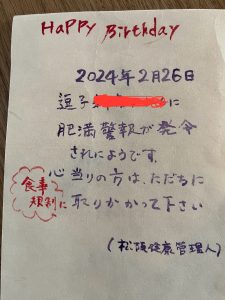 HaPPY Birthday
2024年2月26日
逗子に
肥満警報が発令
されにようです。
心当りの方は、ただちに
食事
規制に取りかかって下さい
(松阪健康管理人)